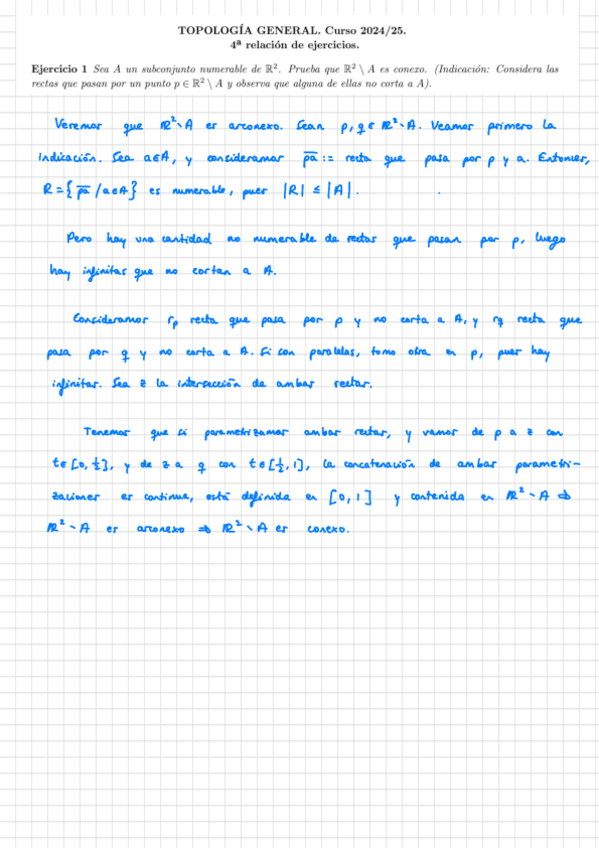 TOPOLOGÍA GENERAL. Curso 2024/25.
4ª relación de ejercicios.
Ejercicio 1 Sea A un subconjunto numerable de ℝ². Prueba que ℝ² \ A es conexo. (Indicación: Considera las
rectas que pasan por un punto p ∈ ℝ² \ A y observa que alguna de ellas no corta a A).
Veremos que ℝ²\A es arconexo. Sean p, q ∈ ℝ²\A. Veamos primero la
indicación. Sea a∈A, y consideramos p̅a̅ := recta que pasa por p y a. Entonces,
R = { p̅a̅ / a∈A } es numerable, pues |R| ≤ |A|.
Pero hay una cantidad no numerable de rectas que pasan por p, luego
hay infinitas que no cortan a A.
Consideramos rₚ recta que pasa por p y no corta a A, y r_q recta que
pasa por q y no corta a A. Si son paralelas, tomo otra en p, pues hay
infinitas. Sea z la intersección de ambas rectas.
Tenemos que si parametrizamos ambas rectas, y vamos de p a z con
t∈[0, ½], y de z a q con t∈[½, 1], la concatenación de ambas parametri-
zaciones es continua, está definida en [0, 1] y contenida en ℝ²\A ⇒
ℝ²\A es arconexo ⇒ ℝ²\A es conexo.